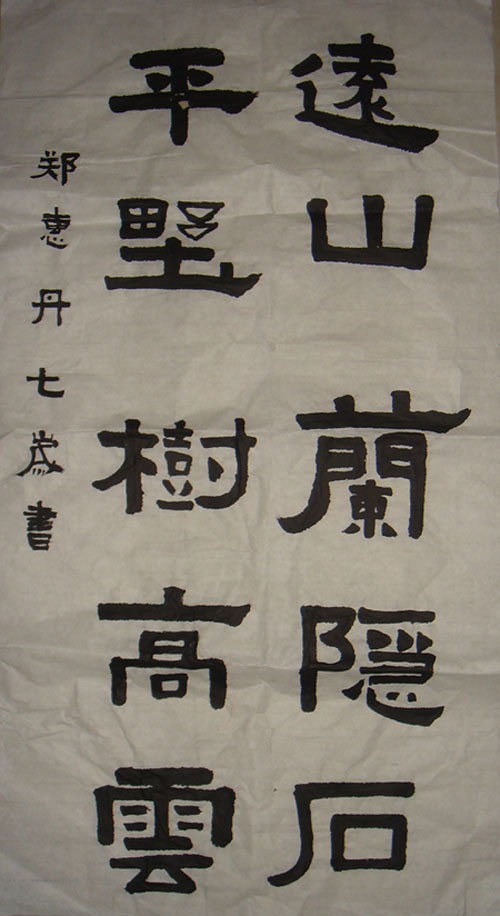 遠山蘭隠石
平墅樹高雲
郑惠丹七岁書